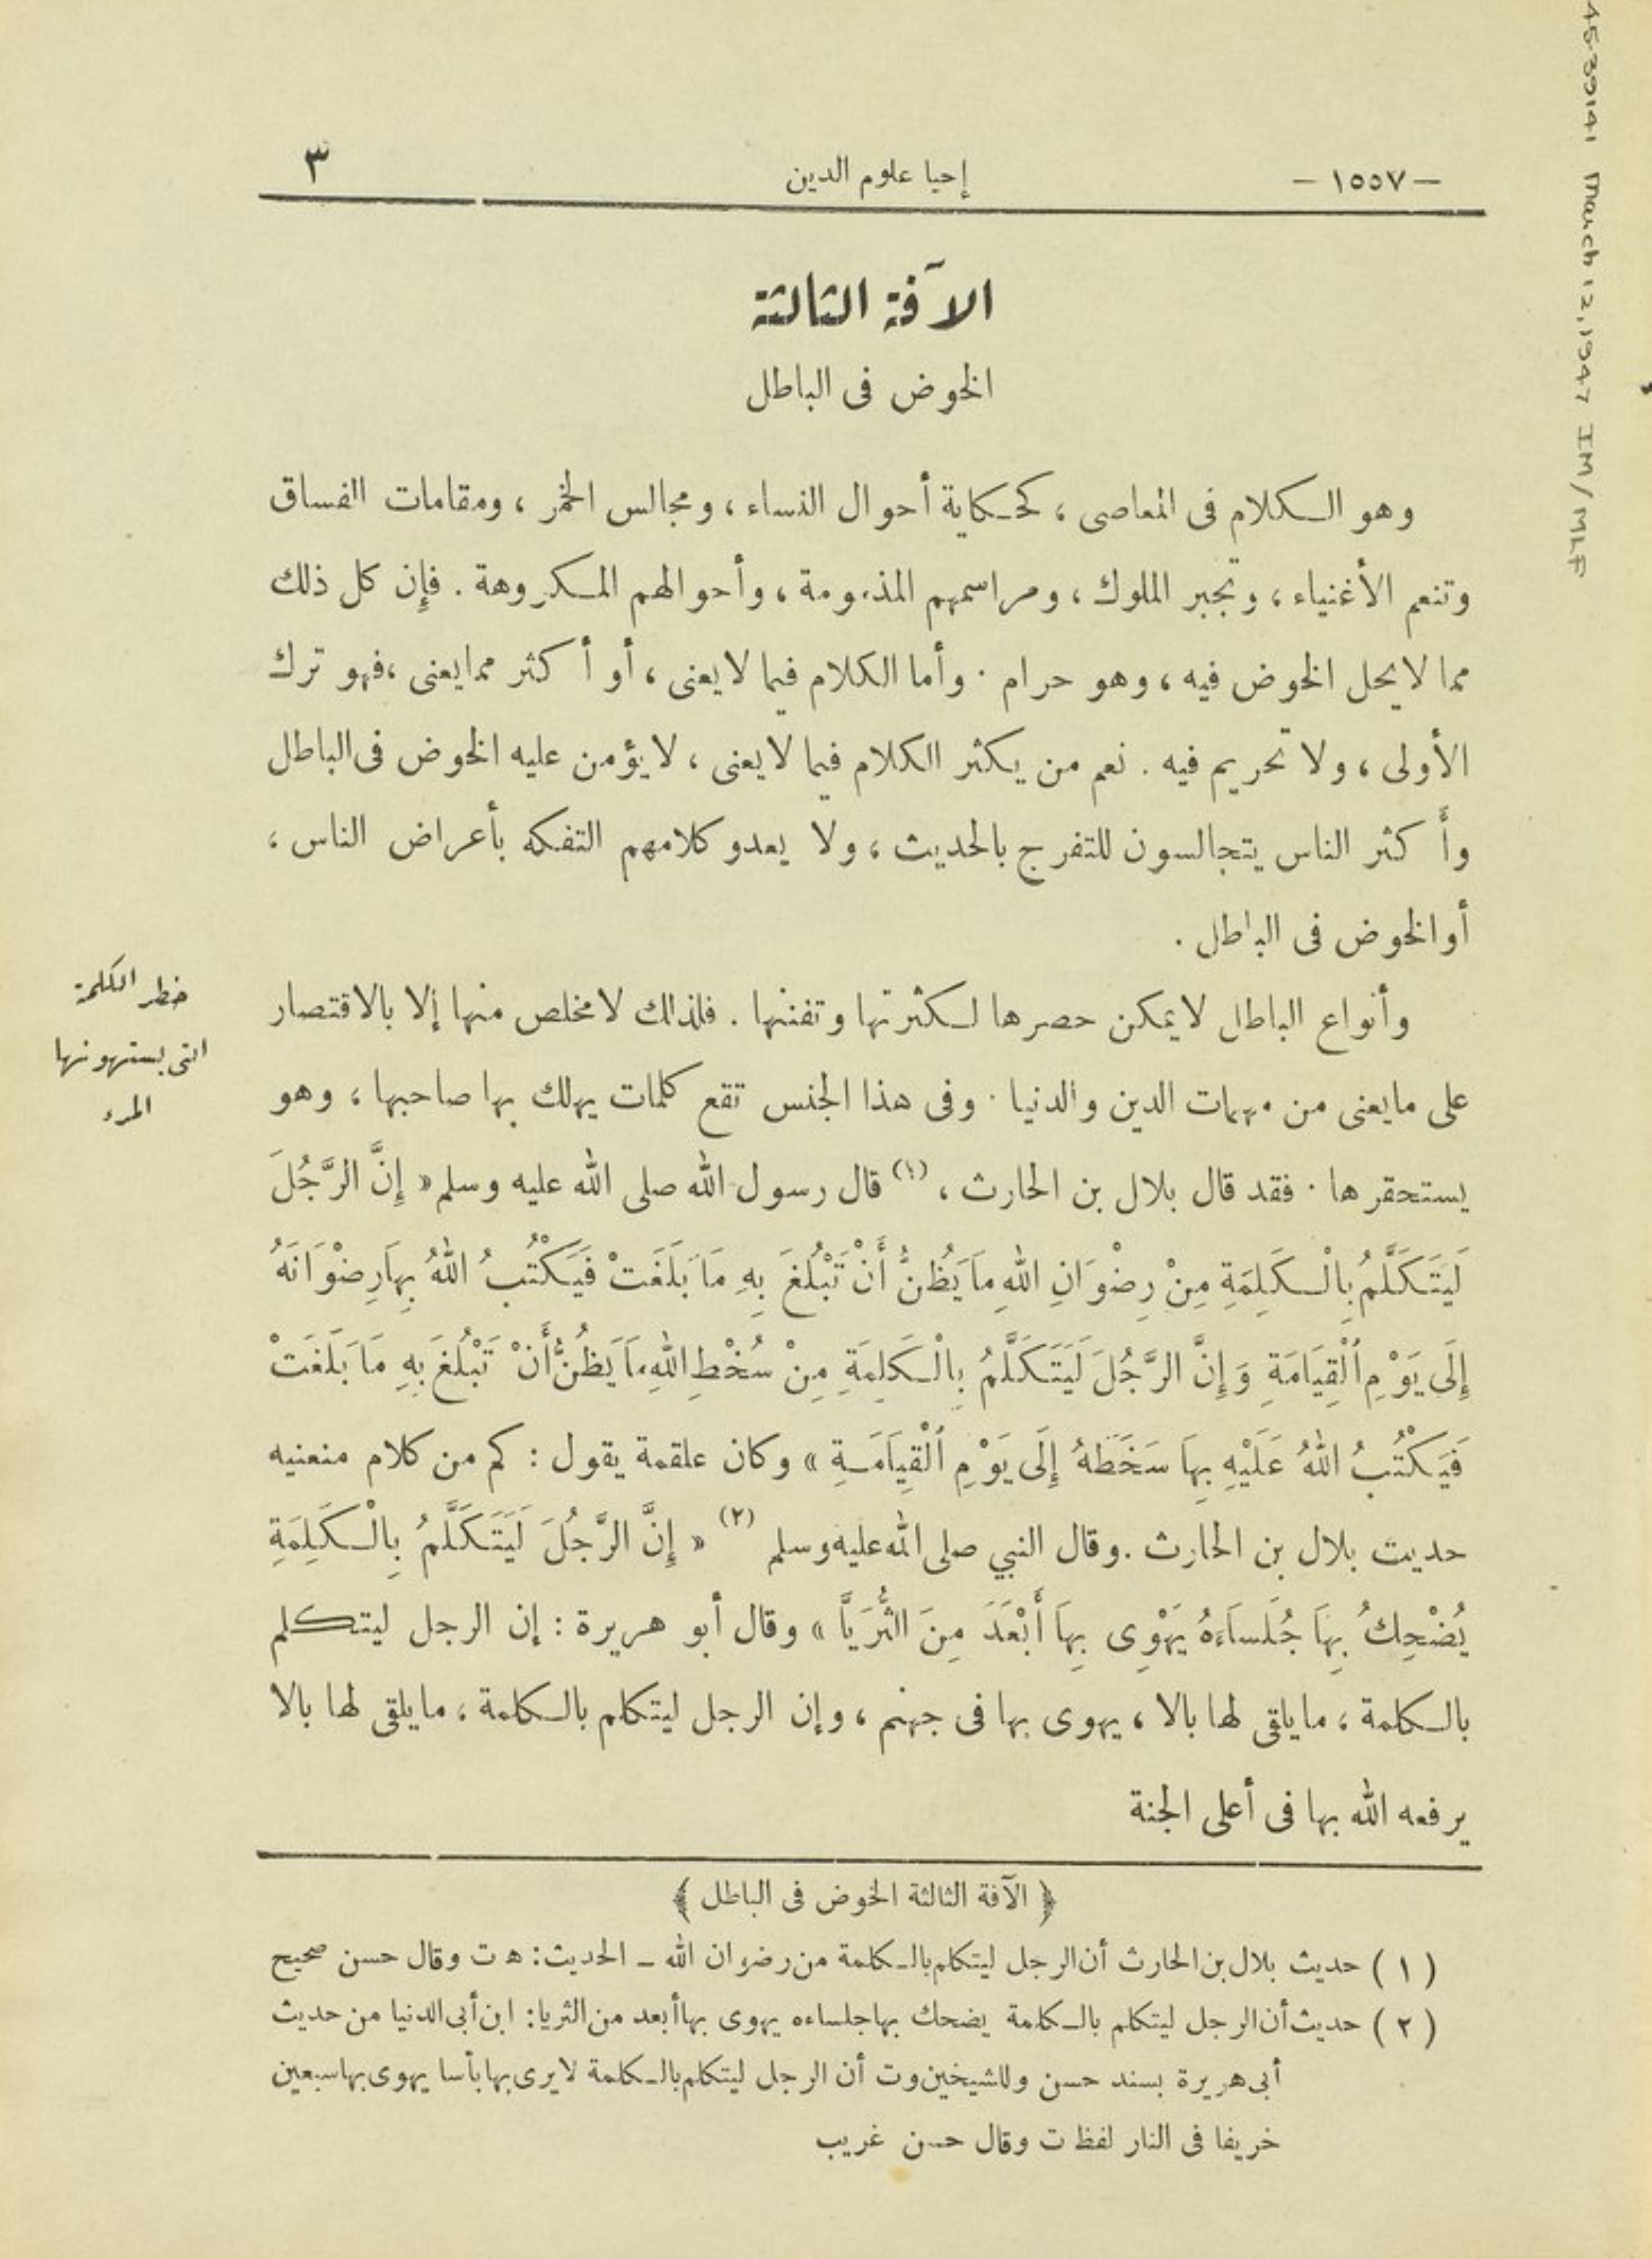 — ١٥٥٧ — إحيا علوم الدين ٣
الآفة الثالثة
الخوض فى الباطل
وهو الكلام فى المعاصى ، كحكاية أحوال النساء ، ومجالس الخمر ، ومقامات الفساق
وتنعم الأغنياء ، وتجبر الملوك ، ومراسمهم المذمومة ، وأحوالهم المكروهة . فإن كل ذلك
مما لا يحل الخوض فيه ، وهو حرام . وأما الكلام فيما لا يعنى ، أو أكثر مما يعنى ، فهو ترك
الأولى ، ولا تحريم فيه . نعم من يكثر الكلام فيما لا يعنى ، لا يؤمن عليه الخوض فى الباطل
وأكثر الناس يتجالسون للتفرج بالحديث ، ولا يعدو كلامهم التفكه بأعراض الناس ،
أو الخوض فى الباطل .
وأنواع الباطل لا يمكن حصرها لكثرتها وتفننها . فلذلك لا مخلص منها إلا بالاقتصار
على ما يعنى من مهمات الدين والدنيا . وفى هذا الجنس تقع كلمات يهلك بها صاحبها ، وهو
يستحقرها . فقد قال بلال بن الحارث ، (١) قال رسول الله صلى الله عليه وسلم « إِنَّ الرَّجُلَ
لَيَتَكَلَّمُ بِالْكَلِمَةِ مِنْ رِضْوَانِ اللهِ مَا يَظُنُّ أَنْ تَبْلُغَ بِهِ مَا بَلَغَتْ فَيَكْتُبُ اللهُ بِهَا رِضْوَانَهُ
إِلَى يَوْمِ الْقِيَامَةِ وَإِنَّ الرَّجُلَ لَيَتَكَلَّمُ بِالْكَلِمَةِ مِنْ سُخْطِ اللهِ مَا يَظُنُّ أَنْ تَبْلُغَ بِهِ مَا بَلَغَتْ
فَيَكْتُبُ اللهُ عَلَيْهِ بِهَا سَخَطَهُ إِلَى يَوْمِ الْقِيَامَةِ » وكان علقمة يقول : كم من كلام منعنيه
حديث بلال بن الحارث . وقال النبي صلى الله عليه وسلم (٢) « إِنَّ الرَّجُلَ لَيَتَكَلَّمُ بِالْكَلِمَةِ
يُضْحِكُ بِهَا جُلَسَاءَهُ يَهْوِى بِهَا أَبْعَدَ مِنَ الثُّرَيَّا » وقال أبو هريرة : إن الرجل ليتكلم
بالكلمة ، ما يلقى لها بالا ، يهوى بها فى جهنم ، وإن الرجل ليتكلم بالكلمة ، ما يلقى لها بالا
يرفعه الله بها فى أعلى الجنة
خطر الكلمة
التى يستهونها
المرء
﴿ الآفة الثالثة الخوض فى الباطل ﴾
( ١ ) حديث بلال بن الحارث أن الرجل ليتكلم بالكلمة من رضوان الله ـ الحديث : ه ت وقال حسن صحيح
( ٢ ) حديث أن الرجل ليتكلم بالكلمة يضحك بها جلساءه يهوى بها أبعد من الثريا : ابن أبى الدنيا من حديث
أبى هريرة بسند حسن وللشيخين وت أن الرجل ليتكلم بالكلمة لا يرى بها بأسا يهوى بها سبعين
خريفا فى النار لفظ ت وقال حسن غريب
45-39141 March 12, 1947 IM/MLF